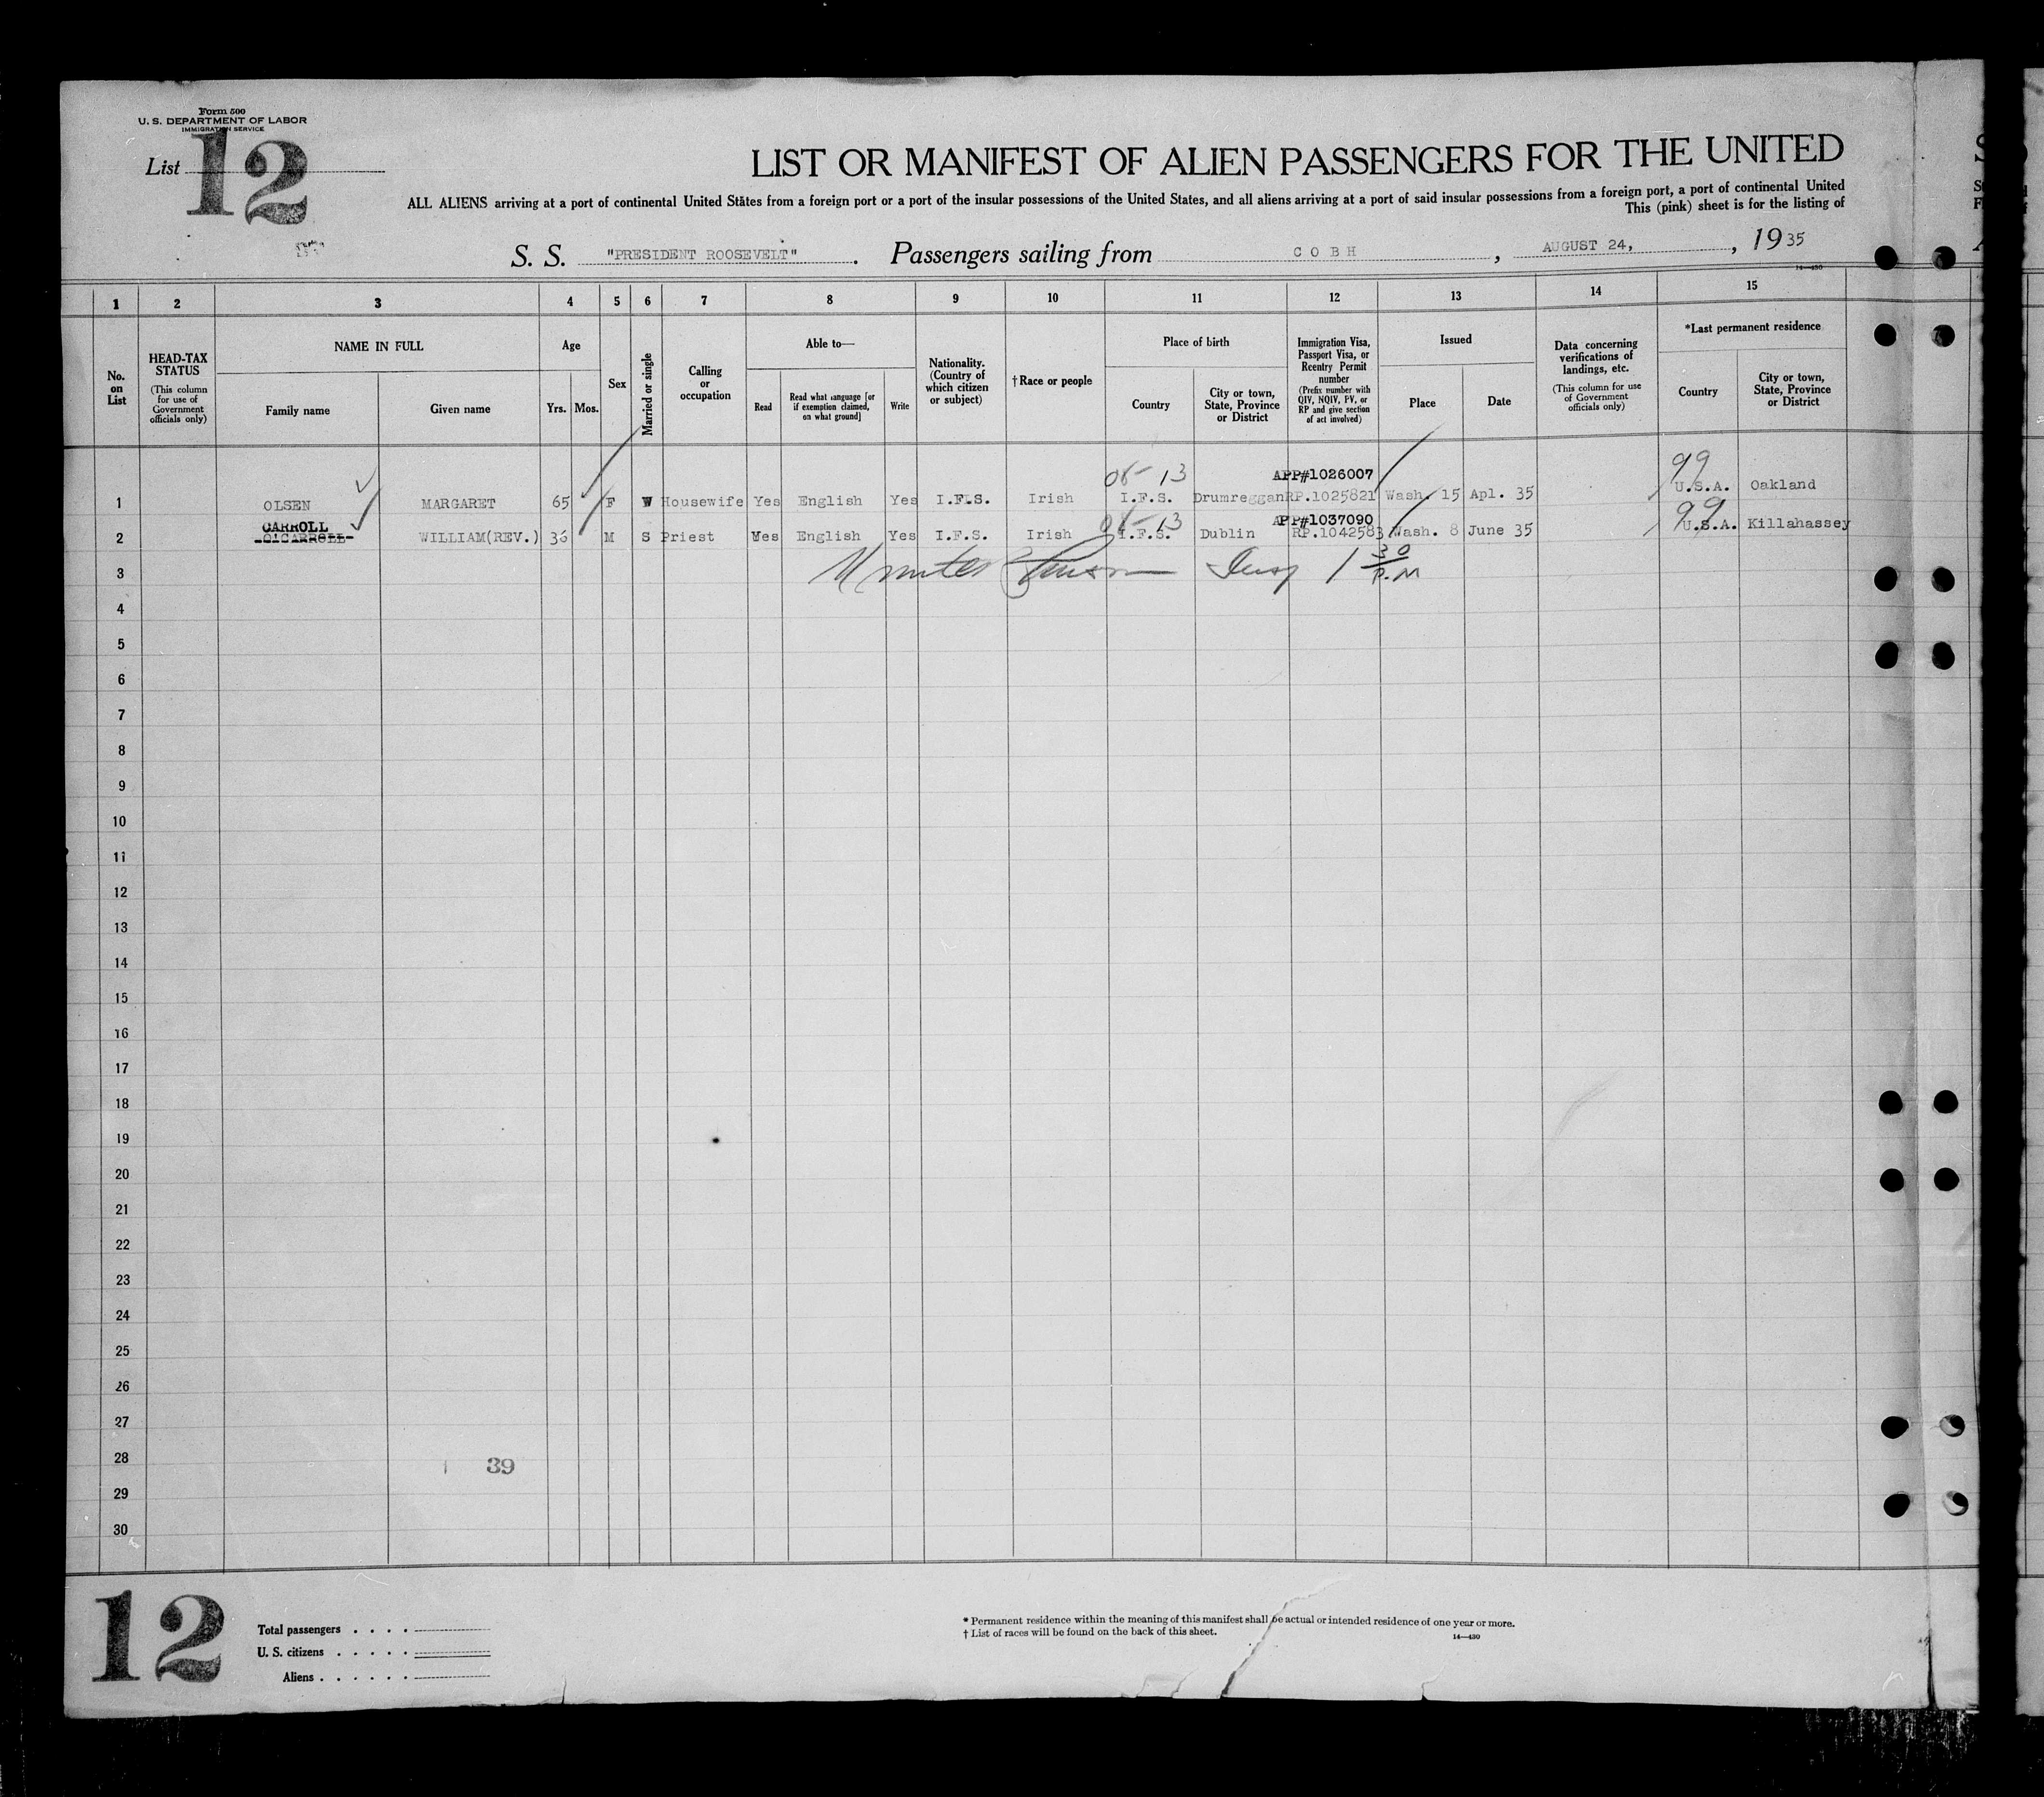 Form 500
U. S. DEPARTMENT OF LABOR
IMMIGRATION SERVICE
List 12
LIST OR MANIFEST OF ALIEN PASSENGERS FOR THE UNITED
ALL ALIENS arriving at a port of continental United States from a foreign port or a port of the insular possessions of the United States, and all aliens arriving at a port of said insular possessions from a foreign port, a port of continental United
This (pink) sheet is for the listing of
S. S. "PRESIDENT ROOSEVELT". Passengers sailing from COBH, AUGUST 24, , 1935
14—430
1 2 3 4 5 6 7 8 9 10 11 12 13 14 15
No. on List
HEAD-TAX STATUS (This column for use of Government officials only)
NAME IN FULL
Family name
Given name
Age
Yrs. Mos.
Sex
Married or single
Calling or occupation
Able to—
Read
Read what language [or if exemption claimed, on what ground]
Write
Nationality. (Country of which citizen or subject)
†Race or people
Place of birth
Country
City or town, State, Province or District
Immigration Visa, Passport Visa, or Reentry Permit number (Prefix number with QIV, NQIV, PV, or RP and give section of act involved)
Issued
Place
Date
Data concerning verifications of landings, etc. (This column for use of Government officials only)
*Last permanent residence
Country
City or town, State, Province or District
05-13 APP#1026007 99
1 OLSEN MARGARET 65 F W Housewife Yes English Yes I.F.S. Irish I.F.S. Drumreggan RP.1025821 Wash. 15 Apl. 35 U.S.A. Oakland
CARROLL 05-13 APP#1037090 99
2 O'CARROLL WILLIAM(REV.) 36 M S Priest Yes English Yes I.F.S. Irish I.F.S. Dublin RP.1042583 Wash. 8 June 35 U.S.A. Killahassey
3 Insp 1 30 P.M
4
5
6
7
8
9
10
11
12
13
14
15
16
17
18
19
20
21
22
23
24
25
26
27
28 39
29
30
12
Total passengers . . . .
U. S. citizens . . . . .
Aliens . . . . . .
* Permanent residence within the meaning of this manifest shall be actual or intended residence of one year or more.
† List of races will be found on the back of this sheet.
14—430